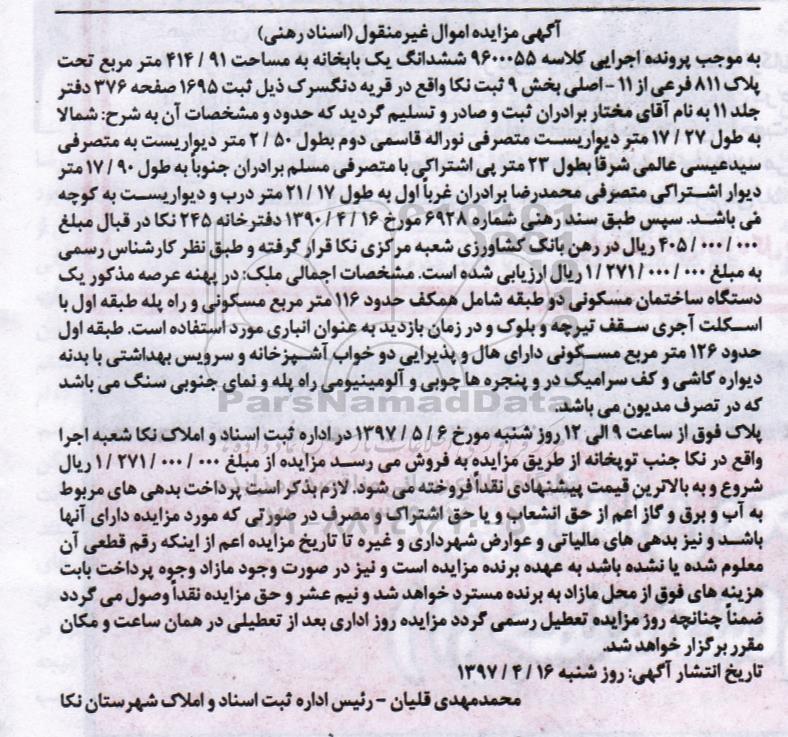 آگهی مزایده اموال غیرمنقول (اسناد رهنی)
به موجب پرونده اجرایی کلاسه ۹۶۰۰۰۵۵ ششدانگ یک بابخانه به مساحت ۹۱ / ۴۱۴ متر مربع تحت
پلاک ۸۱۱ فرعی از ۱۱ - اصلی بخش ۹ ثبت نکا واقع در قریه دنگسرک ذیل ثبت ۱۶۹۵ صفحه ۳۷۶ دفتر
جلد ۱۱ به نام آقای مختار برادران ثبت و صادر و تسلیم گردید که حدود و مشخصات آن به شرح: شمالا
به طول ۲۷ / ۱۷ متر دیواریست متصرفی نوراله قاسمی دوم بطول ۵۰ / ۲ متر دیواریست به متصرفی
سیدعیسی عالمی شرقاً بطول ۲۳ متر پی اشتراکی با متصرفی مسلم برادران جنوباً به طول ۹۰ / ۱۷ متر
دیوار اشتراکی متصرفی محمدرضا برادران غرباً اول به طول ۱۷ / ۲۱ متر درب و دیواریست به کوچه
می باشد. سپس طبق سند رهنی شماره ۶۹۲۸ مورخ ۱۶ / ۴ / ۱۳۹۰ دفترخانه ۲۴۵ نکا در قبال مبلغ
۰۰۰ / ۰۰۰ / ۴۰۵ ریال در رهن بانک کشاورزی شعبه مرکزی نکا قرار گرفته و طبق نظر کارشناس رسمی
به مبلغ ۰۰۰ / ۰۰۰ / ۲۷۱ / ۱ ریال ارزیابی شده است. مشخصات اجمالی ملک: در پهنه عرصه مذکور یک
دستگاه ساختمان مسکونی دو طبقه شامل همکف حدود ۱۱۶ متر مربع مسکونی و راه پله طبقه اول با
اسکلت آجری سقف تیرچه و بلوک و در زمان بازدید به عنوان انباری مورد استفاده است. طبقه اول
حدود ۱۲۶ متر مربع مسکونی دارای هال و پذیرایی دو خواب آشپزخانه و سرویس بهداشتی با بدنه
دیواره کاشی و کف سرامیک در و پنجره ها چوبی و آلومینیومی راه پله و نمای جنوبی سنگ می باشد
که در تصرف مدیون می باشد.
پلاک فوق از ساعت ۹ الی ۱۲ روز شنبه مورخ ۶ / ۵ / ۱۳۹۷ در اداره ثبت اسناد و املاک نکا شعبه اجرا
واقع در نکا جنب توپخانه از طریق مزایده به فروش می رسد مزایده از مبلغ ۰۰۰ / ۰۰۰ / ۲۷۱ / ۱ ریال
شروع و به بالاترین قیمت پیشنهادی نقداً فروخته می شود. لازم بذکر است پرداخت بدهی های مربوط
به آب و برق و گاز اعم از حق انشعاب و یا حق اشتراک و مصرف در صورتی که مورد مزایده دارای آنها
باشد و نیز بدهی های مالیاتی و عوارض شهرداری و غیره تا تاریخ مزایده اعم از اینکه رقم قطعی آن
معلوم شده یا نشده باشد به عهده برنده مزایده است و نیز در صورت وجود مازاد وجوه پرداخت بابت
هزینه های فوق از محل مازاد به برنده مسترد خواهد شد و نیم عشر و حق مزایده نقداً وصول می گردد
ضمناً چنانچه روز مزایده تعطیل رسمی گردد مزایده روز اداری بعد از تعطیلی در همان ساعت و مکان
مقرر برگزار خواهد شد.
تاریخ انتشار آگهی: روز شنبه ۱۶ / ۴ / ۱۳۹۷
محمدمهدی قلیان - رئیس اداره ثبت اسناد و املاک شهرستان نکا
ParsNamadData